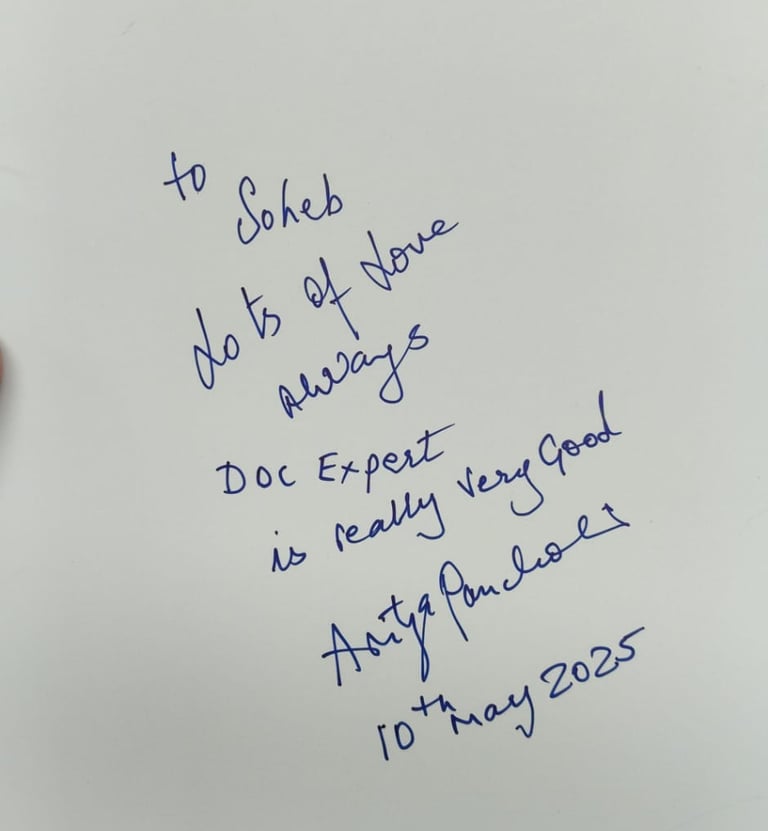 to
Soheb
Lots of Love
Always
DOC Expert
is really very Good
Pancholi
10th May 2025